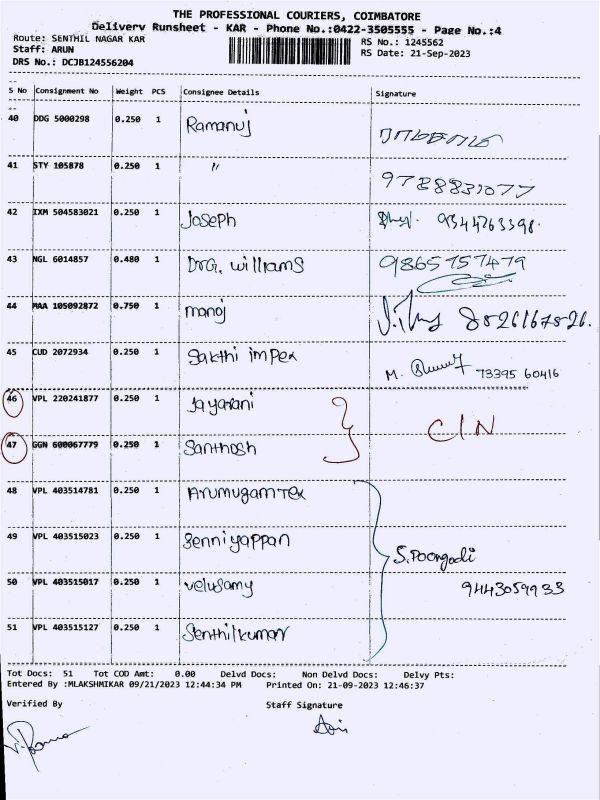 THE PROFESSIONAL COURIERS, COIMBATORE
Delivery Runsheet - KAR - Phone No.:0422-3505555 - Page No.:4
Route: SENTHIL NAGAR KAR RS No.: 1245562
Staff: ARUN RS Date: 21-Sep-2023
DRS No.: DCJB124556204
S No Consignment No Weight PCS Consignee Details Signature
40 DDG 5000298 0.250 1 Ramanuj
41 STY 105878 0.250 1 〃 9728831077
42 IXM 504583021 0.250 1 Joseph 9344263398.
43 NGL 6014857 0.480 1 DrG. williams 9865757479
44 MAA 105092872 0.750 1 manoj 8526167826.
45 CUD 2072934 0.250 1 Sakthi impex M. 73395 60416
46 VPL 220241877 0.250 1 Jayarani
47 GGN 600067779 0.250 1 Santhosh C/N
48 VPL 403514781 0.250 1 Arumugam Tex
49 VPL 403515023 0.250 1 Senniyappan S.Poongodi
50 VPL 403515017 0.250 1 velusamy 9443059933
51 VPL 403515127 0.250 1 Senthilkumar
Tot Docs: 51 Tot COD Amt: 0.00 Delvd Docs: Non Delvd Docs: Delvy Pts:
Entered By :MLAKSHMIKAR 09/21/2023 12:44:34 PM Printed On: 21-09-2023 12:46:37
Verified By Staff Signature